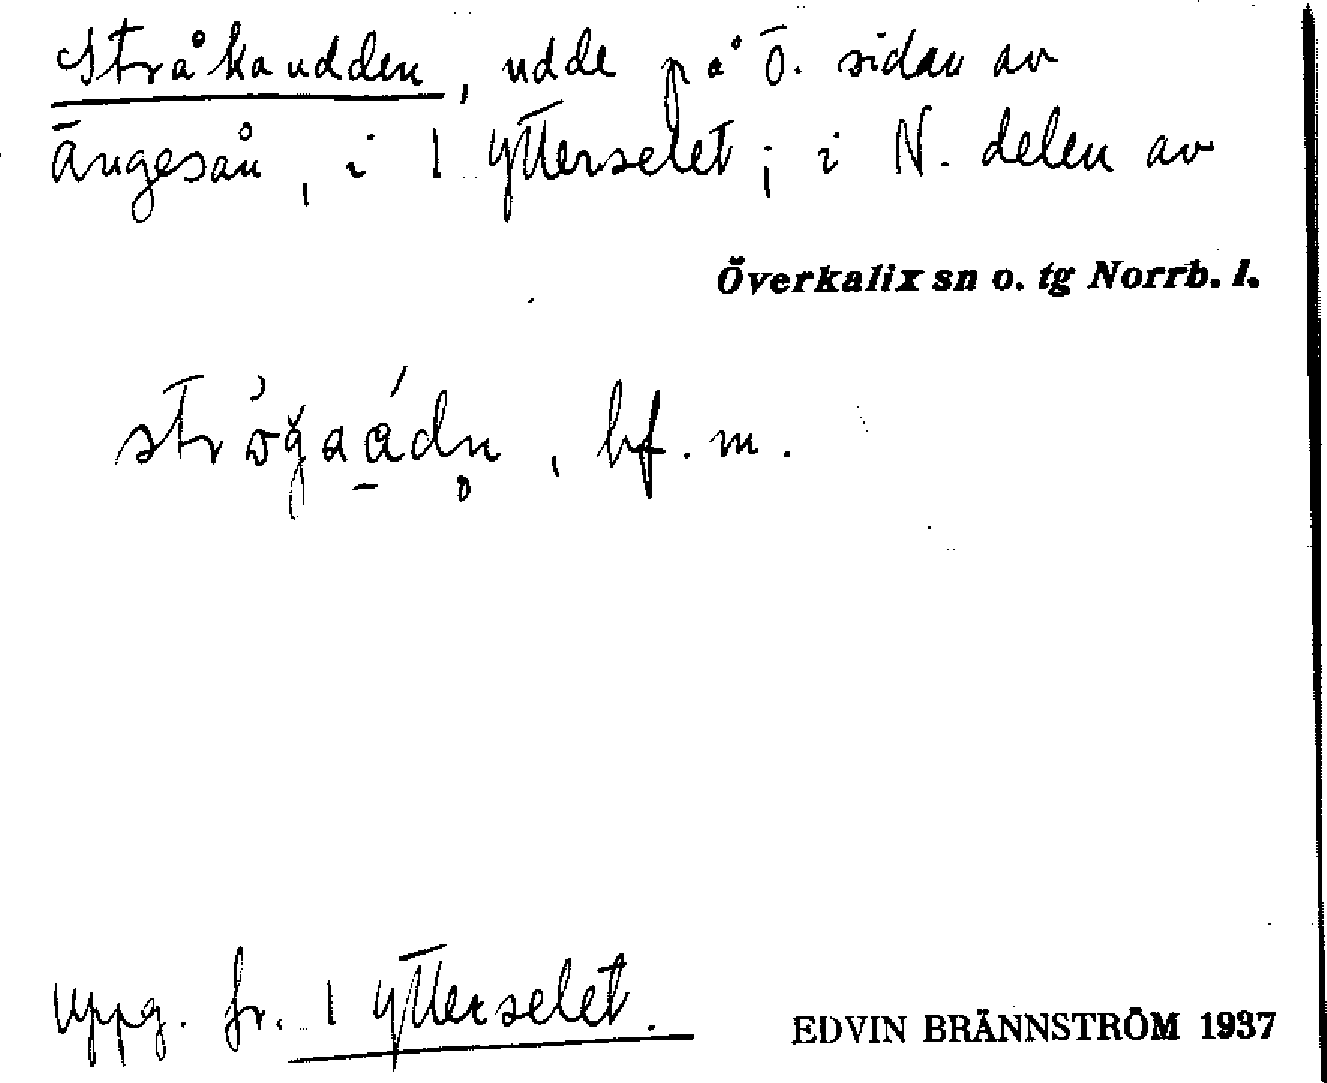 Stråkaudden, udde på ö. sidan av
ängesån, i 1 ytterselet; i N. delen av
Överkalix sn o. tg Norrb. l.
bf. m.
uppg. fr. 1 ytterselet.
EDVIN BRÄNNSTRÖM 1937